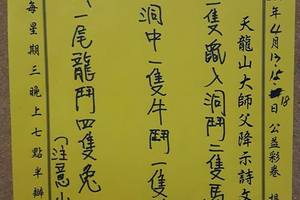 年4月13.15.18日公益彩卷
天龍山大師父降示詩文
一隻鼠入洞鬥二隻馬
洞中一隻牛鬥一隻
一尾龍鬥四隻兔
(注意
每星期三晚上七點半辦